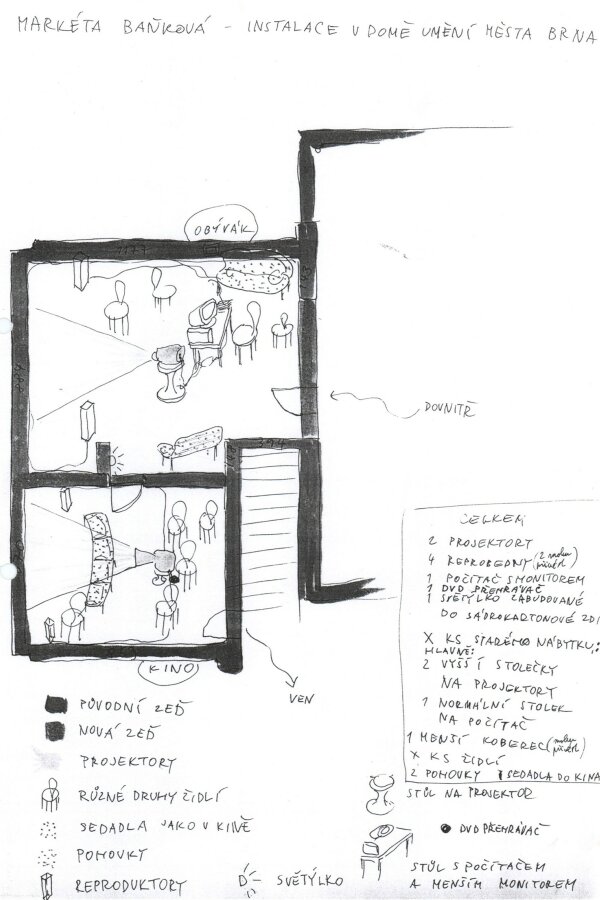 MARKÉTA BAŇKOVÁ - INSTALACE V DOMĚ UMĚNÍ MĚSTA BRNA
OBÝVÁK
DOVNITŘ
394
CELKEM
2 PROJEKTORY
4 REPROBEDNY (2 mohu
1 POČÍTAČ S MONITOREM
1 DVD PŘEHRÁVAČ
1 SVĚTÝLKO ZABUDOVANÉ
DO SÁDROKARTONOVÉ ZDI
X KS STARÉHO NÁBYTKU,:
HLAVNĚ:
2 VYŠŠÍ STOLEČKY
NA PROJEKTORY
1 NORMÁLNÍ STOLEK
NA POČÍTAČ
1 MENŠÍ KOBEREC (mohu
X KS ŽIDLÍ
2 POHOVKY SEDADLA DO KINA
KINO
VEN
PŮVODNÍ ZEĎ
NOVÁ ZEĎ
PROJEKTORY
RŮZNÉ DRUHY ŽIDLÍ
SEDADLA JAKO V KINĚ
POHOVKY
REPRODUKTORY
SVĚTÝLKO
STŮL NA PROJEKTOR
DVD PŘEHRÁVAČ
STŮL S POČÍTAČEM
A MENŠÍM MONITOREM